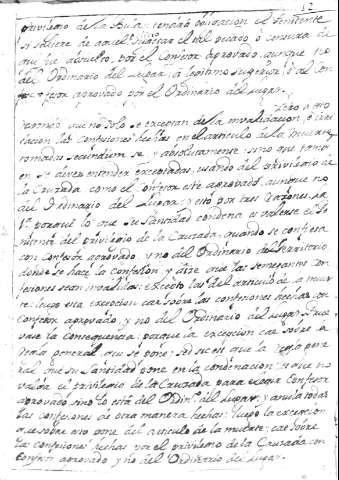 12
privilegio de la Bula; tendrá obligacion el Penitente
si saliere de aquel el tal pecado o censura de
que fue absuelto, por el Confesor aprovado, aunque no
del Ordinario del Lugar, a legitimo Superior, o al Con
fesor aprovado por el Ordinario del Lugar.
Pero a
que no solo se exceptan de la invalidacion,
las confesiones hechas en el articulo de la muerte
tomadas secundum se, y absolutamente, sino que tambi
en se deven entender exceptadas, usando del privilegio de
la Cruzada, como el Confesor este aprovado, aunque no
del Ordinario del Lugar, y esto por tres razones. La
1ª porque lo que su Santidad condena es valerse el Pe
nitente del privilegio de la Cruzada, quando se confiesa
con Confesor aprovado, y no del Ordinario del Territorio
donde se hace la confesion, y dize que las semejantes con
fesiones sean invalidas: excepto las del articulo de la muer
te: luego esta excepcion cae sobre las confesiones hechas con
confesor aprovado, y no del Ordinario del Lugar. Prue
vase la consequencia: porque la excepcion cae sobre la
regla general, que se pone: sed sic est que la regla gene
ral que su Santidad pone en la condenacion, es que no
valga el privilegio de la Cruzada para elegir Confesor
aprovado, sino lo está del Ordinº del Lugar; y anula todas
las confesiones de otra manera hechas: luego la excepcion
que sobre esto pone del articulo de la muerte, cae sobre
las confesiones hechas por el privilegio de la Cruzada, con
Confesor aprovado, y no del Ordinario del Lugar.